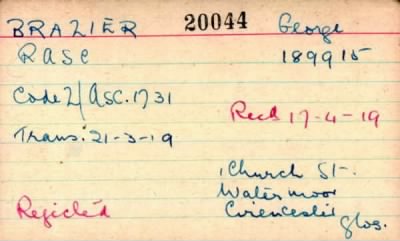 BRAZIER 20044 George
RASC 189915
Code 2/ASC.1731
Recd 17-4-19
Trans: 21-3-19
Church St.
Watermoor
Cirencester
Glos.
Rejected